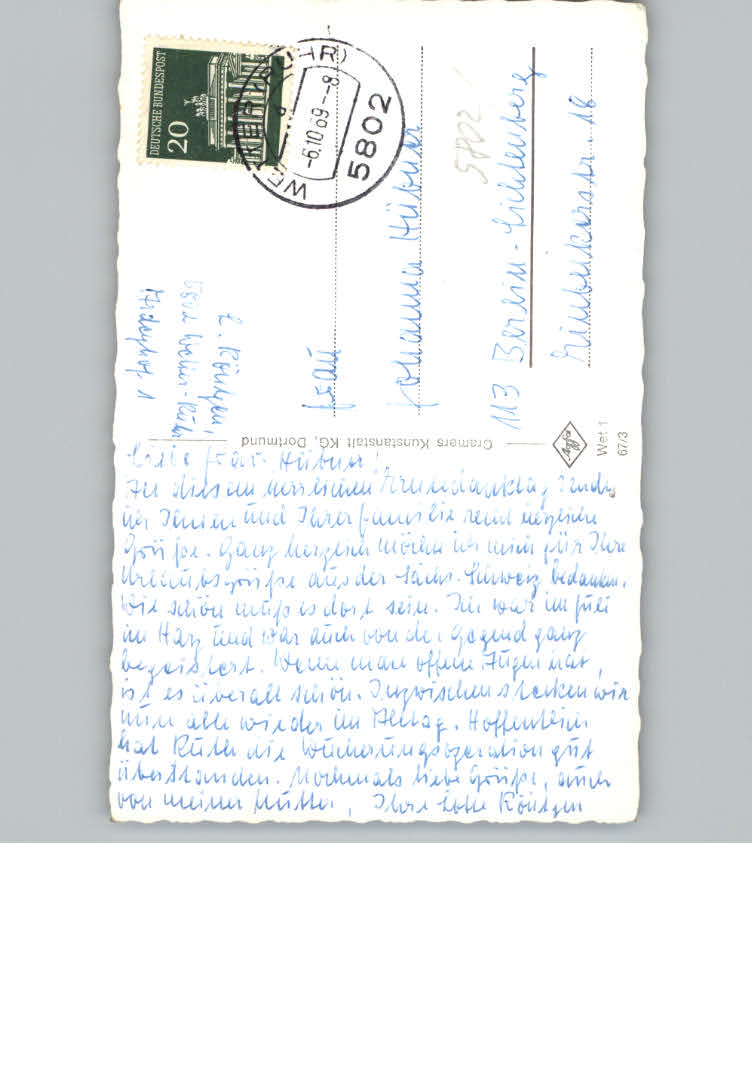 DEUTSCHE BUNDESPOST
20
WETTER (RUHR)
-6.10.69--8
5802
5802
L. Röntgen,
5802 Wetter-Ruhr
1
Frau
Johanna Hübner
113 Berlin-Lichtenberg
18
Cramers Kunstanstalt KG, Dortmund
Agfa
Wet 1
67/3
Liebe Frau Hübner!
An diesem herrlichen Erntedanktag sende
ich Ihnen und Ihrer Familie recht herzliche
Grüße. Ganz herzlich möchte ich mich für Ihre
Urlaubsgrüße aus der Sächs. Schweiz bedanken.
Wie schön muß es dort sein. Ich war im Juli
im Harz und war auch von der Gegend ganz
begeistert. Wenn man offene Augen hat,
ist es überall schön. Inzwischen stecken wir
nun alle wieder im Alltag. Hoffentlich
hat Ruth die Wucherungsoperation gut
überstanden. Nochmals liebe Grüße, auch
von meiner Mutter, Ihre Lotte Röntgen